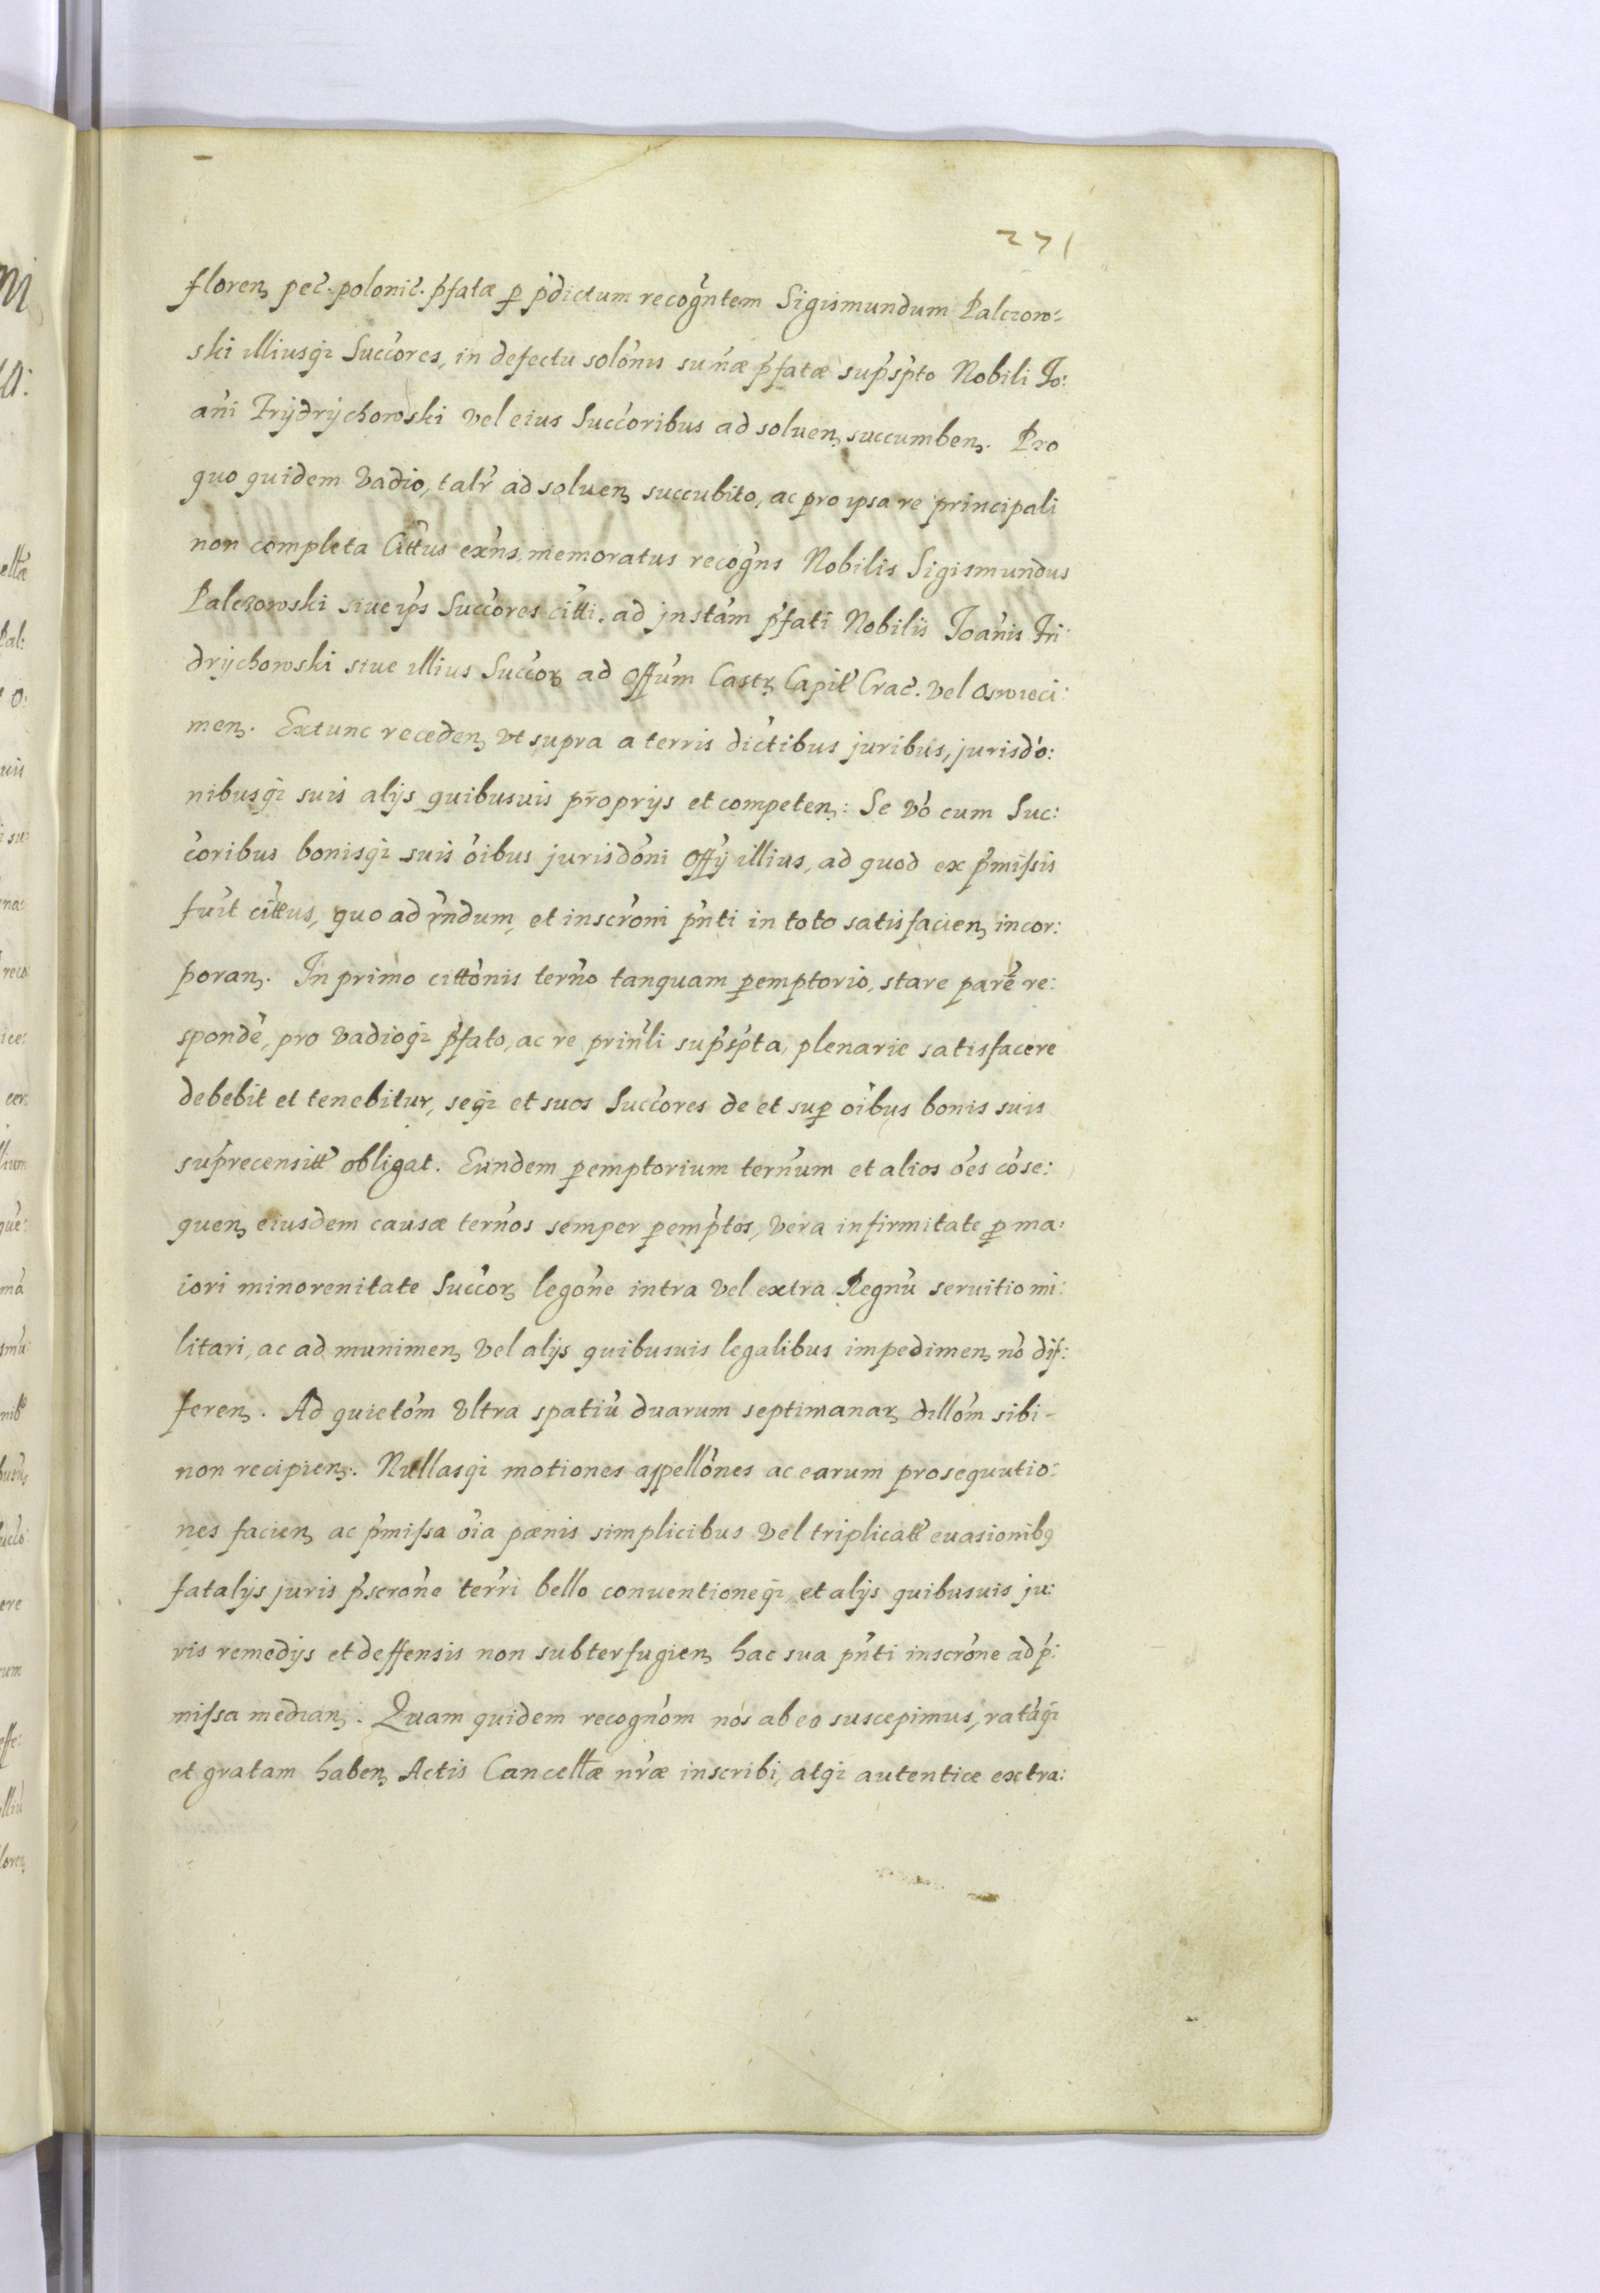 271
floren̨ pec̃. polonic̃. p̃fatæ ꝑ p̃dictum recog̃ntem Sigismundum Palczow-
ski illiusq̢ Succ̃ores, in defectu solõnis sum̃æ p̃fatæ sup̃sp̃to Nobili Jo:
añi Frÿdrÿchowski vel eius Succ̃oribus ad soluen̨ succumben̨. Pro
quo quidem vadio, talr̃ ad soluen̨ succubito, ac pro ipsa re principali
non completa Citt̃us exñs, memoratus recog̃ns Nobilis Sigismundus
Palczowski siue ip̃s Succ̃ores citt̃i. ad jnstam̃ p̃fati Nobilis Joañis Fri:
drÿchowski siue illius Succ̃oꝝ ad Off̃um Castꝝ Capit̃ Crac̃. vel Oswieci:
men̨. Extunc receden̨ vt supra a terris dict̃ibus juribus, jurisdõ:
nibusq̢ suis alÿs quibusuis proprÿs et competen̨: Se võ cum Suc:
c̃oribus bonisq̢ suis õibus jurisdõni Offÿ illius, ad quod ex p̃missis
fuit citt̃us, quo ad rñdum, et inscrõni pñti in toto satisfacien̨ incor:
poran̨. In primo cittõnis term̃o tanquam ꝑemptorio, stare parẽ re:
spondẽ, pro vadioq̢ p̃fato, ac re prinl̃i sup̃sp̃ta, plenarie satisfacere
debebit et tenebitur, seq̢ et suos Succ̃ores de et suꝑ õibus bonis suis
sup̃recensitt̃ obligat. Eundem ꝑemptorium term̃um et alios ões cõse:
quen̨ eiusdem causæ term̃os semper ꝑemp̃tos, vera infirmitate ꝑ ma:
iori minorenitate Succ̃oꝝ legõne intra vel extra Regnũ seruitio mi:
litari, ac ad munimen̨ vel alÿs quibusuis legalibus impedimen̨ nõ dif:
feren̨. Ad quietõm vltra spatiũ duarum septimanaꝝ dillõm sibi-
non recipien̨. Nullasq̢ motiones appellõnes ac earum prosequutio:
nes facien̨ ac p̃missa õia pænis simplicibus vel triplicatt̃ euasionibꝯ
fatalÿs juris p̃scrõne terr̃i bello conuentioneq̢, et alÿs quibusuis ju:
ris remedÿs et deffensis non subterfugien̨ hac sua pñti inscrõne ad p̃:
missa median̨. Quam quidem recognõm nos ab eo suscepimus, ratãq̢
et gratam haben̨ Actis Cancellæ nr̃æ inscribi, atq̢ autentice extra: